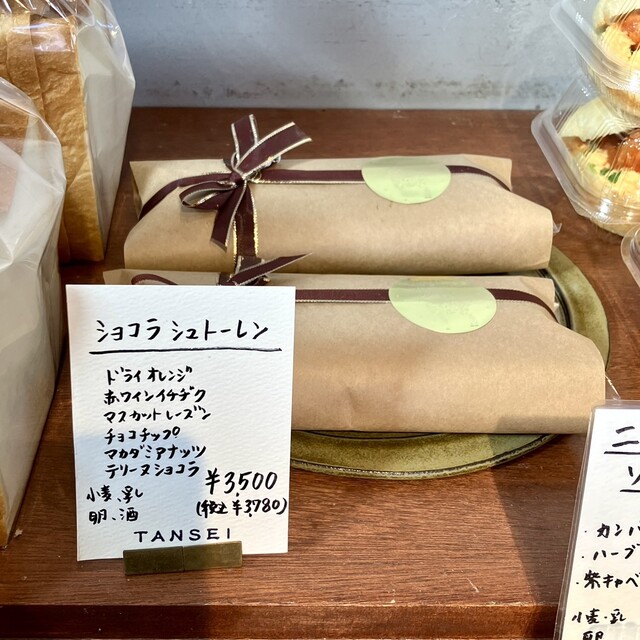 ショコラ シュトーレン
ドライオレンジ
赤ワインイチヂク
マスカットレーズン
チョコチップ
マカダミアナッツ
テリーヌショコラ
小麦、乳
卵、酒
¥3,500
(税込¥3,780)
TANSEI
三
・カンパ
・ハーブ
・紫キャベ
小麦・乳
卵